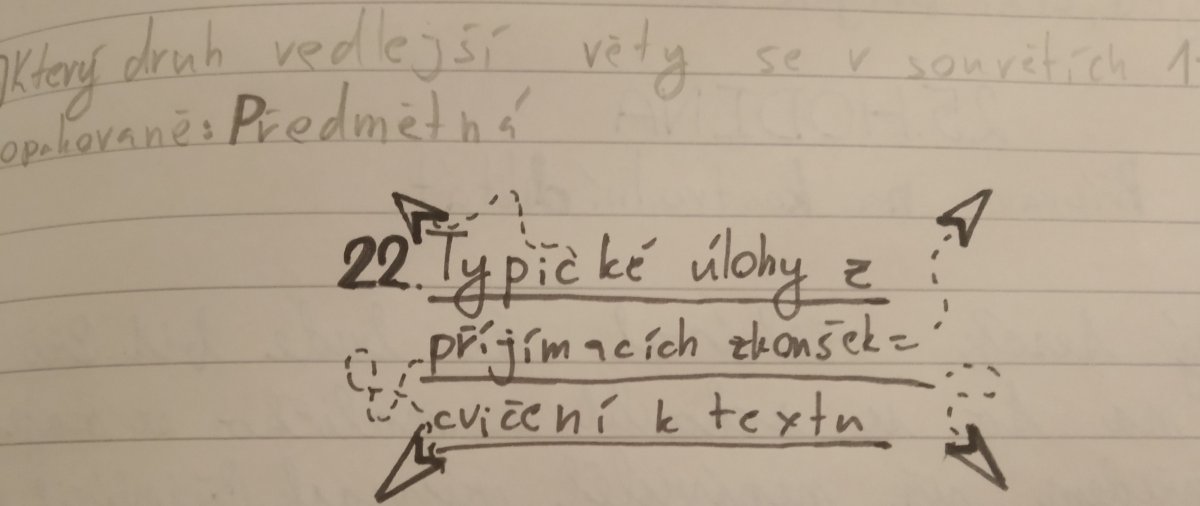 )Který druh vedlejší věty se v souvětích 1-
opakovaně: Předmětná
22. Typické úlohy z
příjímacích zkoušek =
cvičení k textu